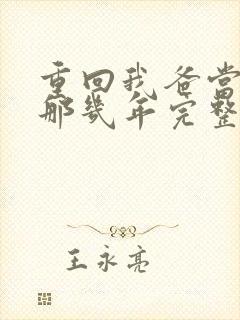 重回我爸当
那几年完整
王永亮